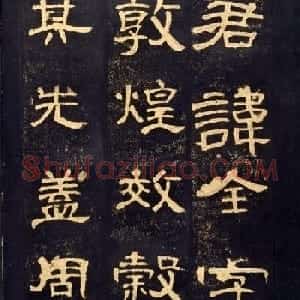 君諱全字
敦煌效穀
其先蓋周
Shufaziliao.COM